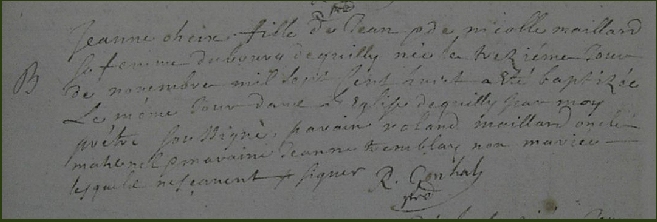 B
Jeanne oheix fille de Jean & de nicolle maillard
sa femme du bourg de quilly née le treziéme Jour
de novembre mil sept Cent huict a eté baptizée
Le méme Jour dans L'Eglise de quilly par moy
prétre soussigné, parain roland maillard oncle
maternel & maraine Jeanne non mariée
lesquels ne sçavent signer R.